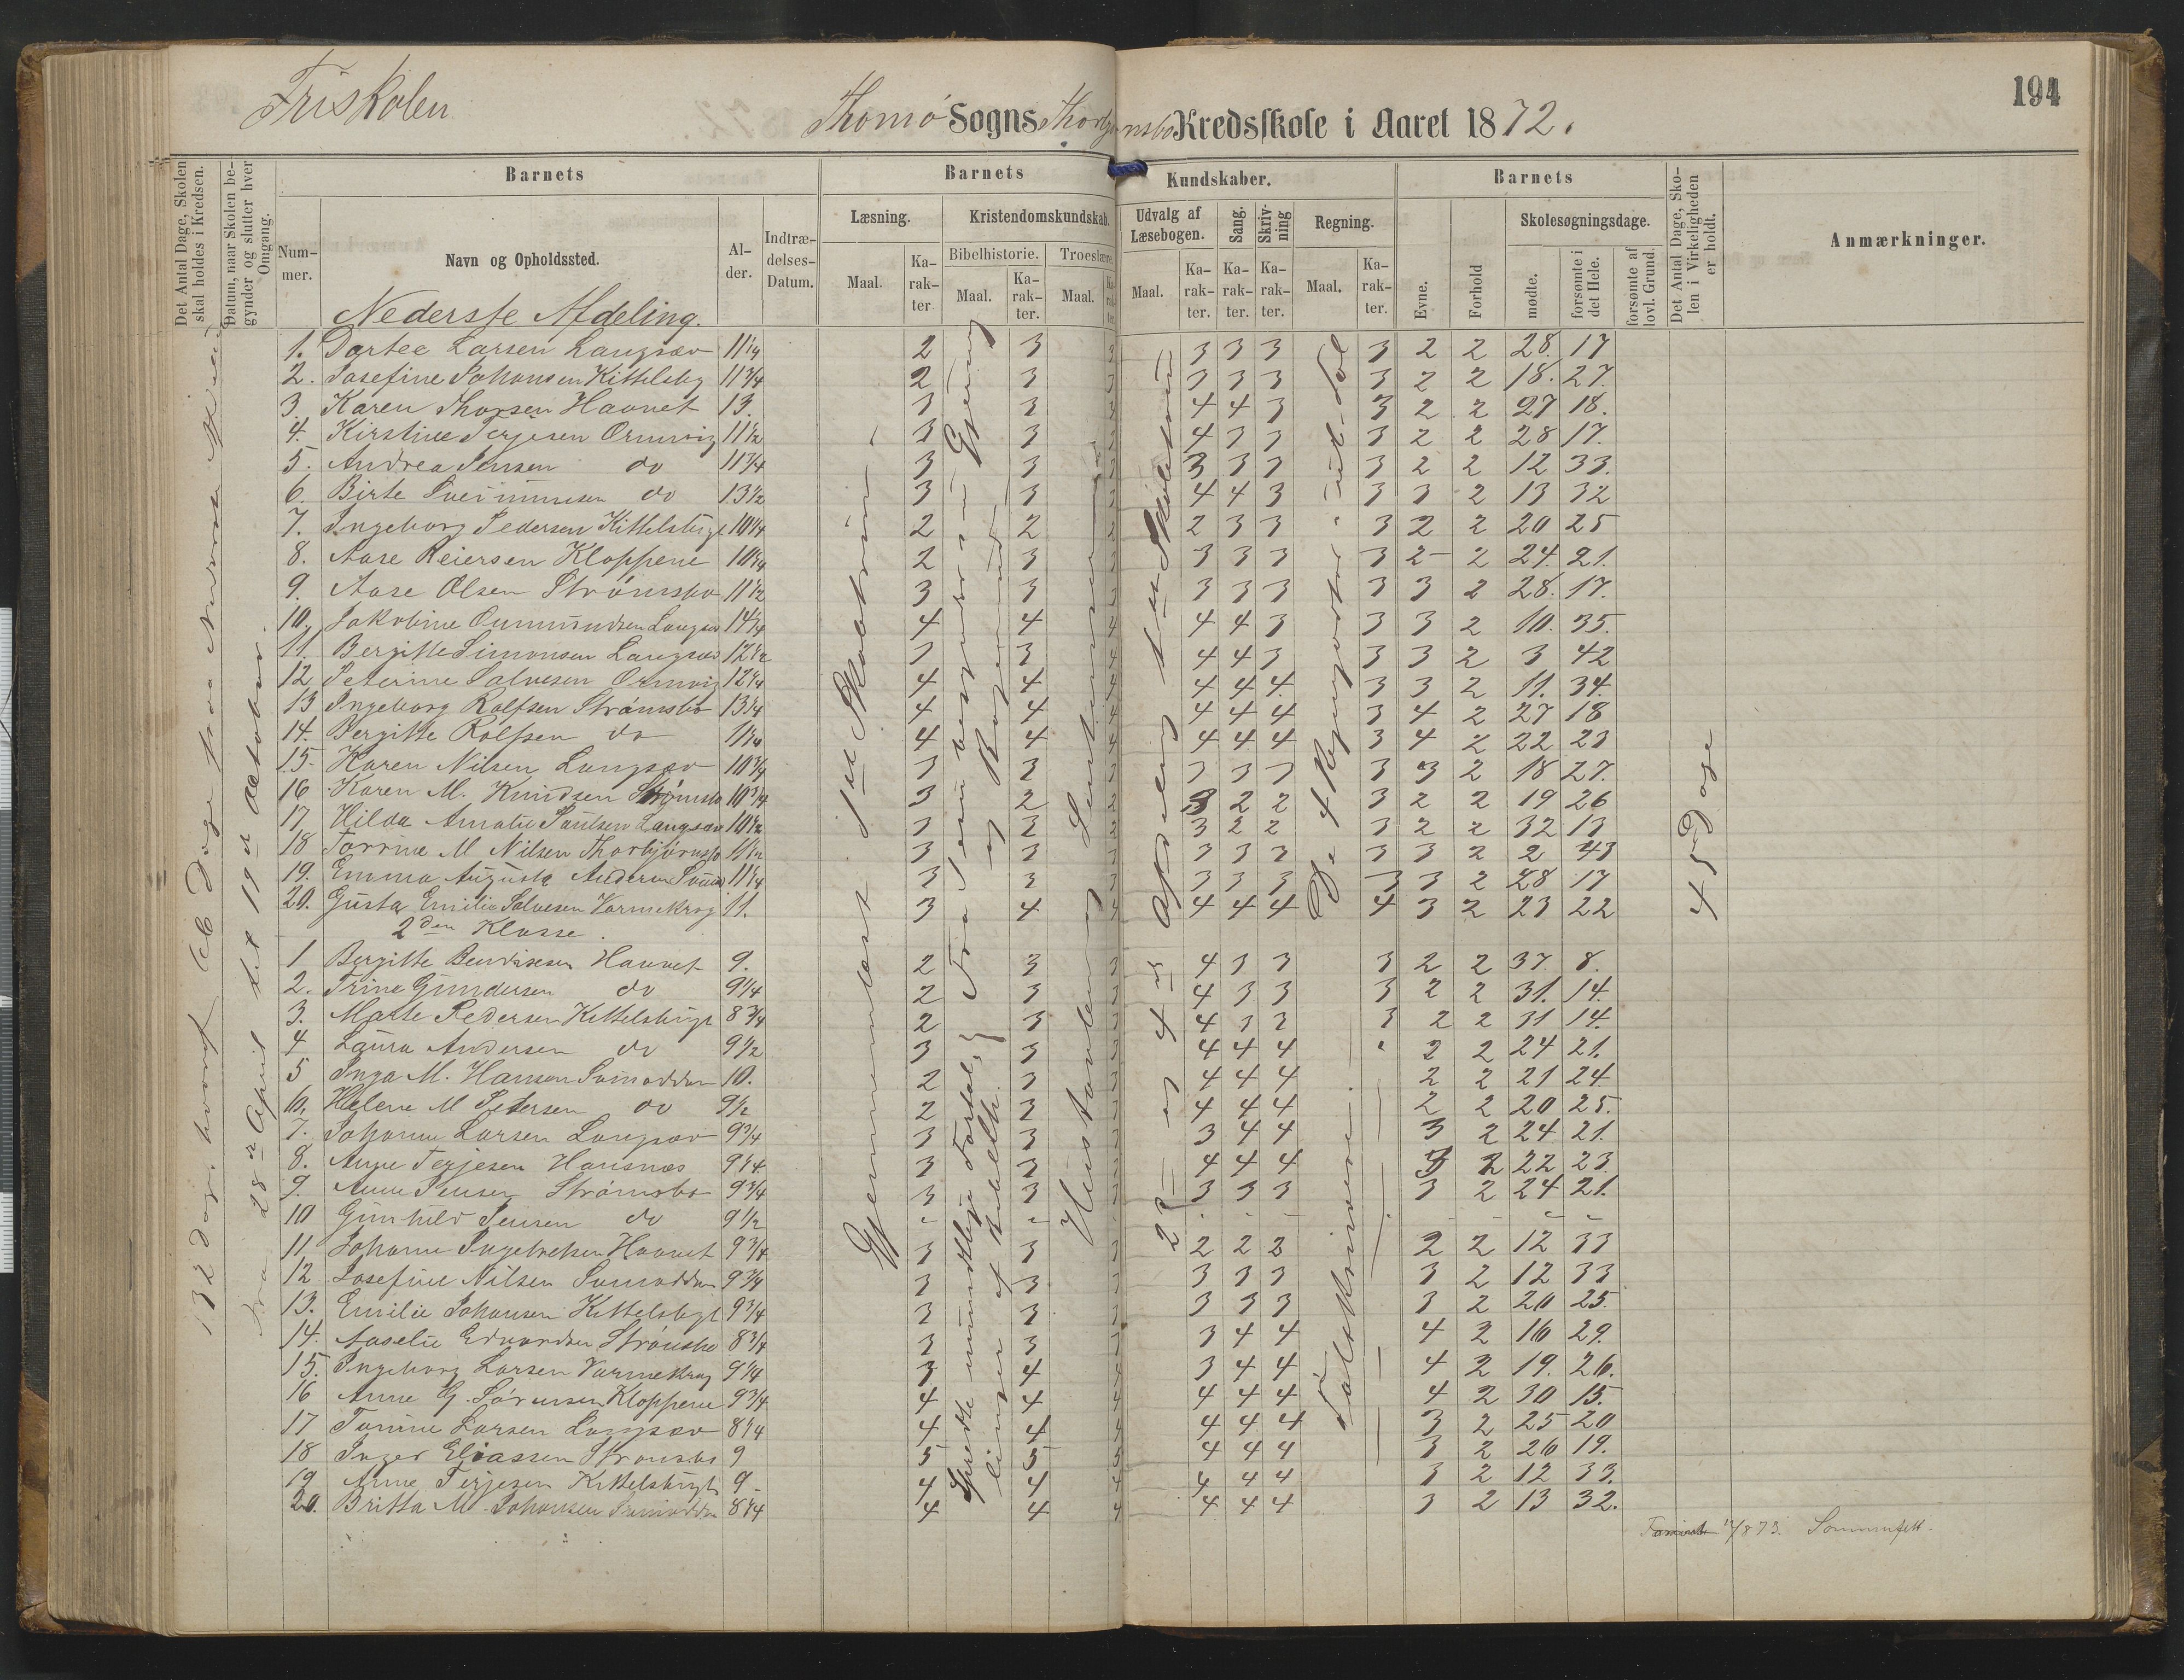 194
Friskolen
Thomø Sogns Thorbjørnsbo Kredsskole i Aaret 1872.
Det Antal Dage, Skolen skal holdes i Kredsen.
Datum, naar Skolen begynder og slutter hver Omgang.
Barnets
Nummer.
Navn og Opholdssted.
Alder.
Indtrædelses-Datum.
Barnets
Kundskaber.
Læsning.
Maal.
Karakter
Kristendomskundskab.
Bibelhistorie.
Maal.
Karakter.
Troeslære
Maal.
Udvalg af Læsebogen.
Maal.
Karakter.
Sang.
Karakter.
Skrivning
Karakter.
Regning.
Maal.
Karakter.
Barnets
Evne.
Forhold
Skolesøgningsdage.
mødte.
forsømte i det Hele.
forsømte af lovl. Grund
Det Antal Dage, Skolen i Virkeligheden er holdt.
Anmærkninger.
Nederste Afdeling.
1. Dortea Larsen Langsæv 11 1/4 2 3 3 3 3 3 3 2 2 28. 17
2. Josefine Johansen Kittelsby 11 3/4 2 3 3 3 3 3 3 2 2 18. 27.
3. Karen Thorsen Havnet 13. 3 3 3 4 4 3 3 2 2 27 18.
4. Kirstine Terjesen Ormvig 11 1/2 3 3 3 4 3 3 3 2 2 28 17.
5. Andrea Jensen do 11 3/4 3 3 3 3 3 3 3 2 2 12 33.
6. Birte do 13 1/2 3 3 3 4 4 3 3 3 2 13 32
7. Ingeborg Pedersen Kittelsbugt 10 1/4 2 2 2 2 3 3 3 2 2 20 25
8. Aase Reiersen Kloppene 10 3/4 2 3 3 3 3 3 3 2 2 24. 21.
9. Aase Olsen Strømsbo 11 1/2 3 3 3 3 3 3 3 3 2 28. 17.
10. Jakobine Gunmundsen Langsæv 14 1/4 4 4 4 4 4 3 3 3 2 10. 35.
11. Bergitte Simonsen Langsæv 12 1/2 3 3 4 4 4 3 3 3 2 3 42
12 Peterine Salvesen Ormvig 12 1/4 4 4 4 4 4 4. 3 3 2 11. 34.
13 Ingeborg Rolfsen Strømsbo 13 1/4 4 4 4 4 4 4 3 4 2 27 18
14. Bergitte Rolfsen do 11 1/4 4 4 4 4 4 4 3 4 2 22 23
15. Karen Nilsen Langsæv 10 3/4 3 3 3 3 3 3 3 3 2 18 27.
16 Karen M. Knudsen Strømsbo 10 3/4 3 2 2 3 2 2 3 2 2 19 26
17 Hilda Amalie Paulsen Langsæv 10 1/2 3 3 3 3 2 2 3 2 2 32 13
18 Torrine M Nilsen Thorbjørnsbo 11 1/2 3 3 3 3 3 3 3 3 2 2 43
19. Emma Augusta Andersen 11 1/4 3 3 3 3 3 3 3 3 2 28 17
20. Gusta Emilie Salvesen Varmekrog 11. 3 4 4 4 4 4 4 3 2 23 22
2den Klasse.
1 Bergitte Bendixsen Havnet 9. 2 3 3 4 3 3 3 2 2 37. 8.
2. Trine Gundersen do 9 1/4 2 3 3 4 3 3 3 2 2 31. 14.
3. Marte Pedersen Kittelsbugt 8 3/4 2 3 3 4 3 3 3 2 2 31 14.
4 Laura Andersen do 9 1/2 3 3 3 4 4 4 2 2 24 21.
5 Inga M. Hansen Sømodden 10. 2 3 3 4 4 4 2 2 21 24.
6. Helene M Petersen do 9 1/2 2 3 3 4 4 4 2 2 20 25.
7. Johanne Larsen Langsæv 9 3/4 3 3 3 3 4 4 3 2 24 21.
8. Anne Terjesen Hansnæs 9 1/4 3 3 3 4 4 4 3 2 22 23.
9. Anne Jensen Strømsbo 9 3/4 3 3 3 3 3 3 3 2 24 21.
10 Gunhild Jensen do 9 1/2 - - - - - - - - -
11 Johanne Ingebretsen Havnet 9 3/4 3 3 3 2 2 2 2 2 12 33
12 Josefine Nilsen Sømodden 9 3/4 3 3 3 3 3 3 3 2 12 33
13. Emilie Johansen Kittelsbugt 9 3/4 3 3 3 3 3 3 3 2 20 25.
14. Aaselie Edvardsen Strømsbo 8 3/4 3 3 3 3 4 4 4 2 16 29.
15. Ingeborg Larsen Varmekrog 9 1/4 3 4 4 3 4 4 4 2 19. 26.
16 Anne G. Sørensen Kloppene 9 3/4 4 4 4 4 4 4 4 2 30 15.
17 Tomine Larsen Langsæv 8 1/4 4 4 4 4 4 4 3 2 25 20
18 Inger Eliassen Strømsbo 9 5 5 5 4 4 4 3 2 26 19.
19 Anne Terjesen Kittelsbugt 9 - 4 4 4 4 4 4 3 2 12 33.
20. Britta M. Johansen Sømodden 8 1/4 4 4 4 4 4 4 3 2 13 32.
132 dage, hvoraf Dage paa Nederste
Fra 28de April til 19de October.
Gjennemlæst 1ste Skoletrin
Fra
Spredte mundtlige Fortællinger af Bibelh.
Hustavlen og
2det Skoletrin
De 4 Regningsarter
Talskrivning
45 Dage
/1873. Sommerfelt.